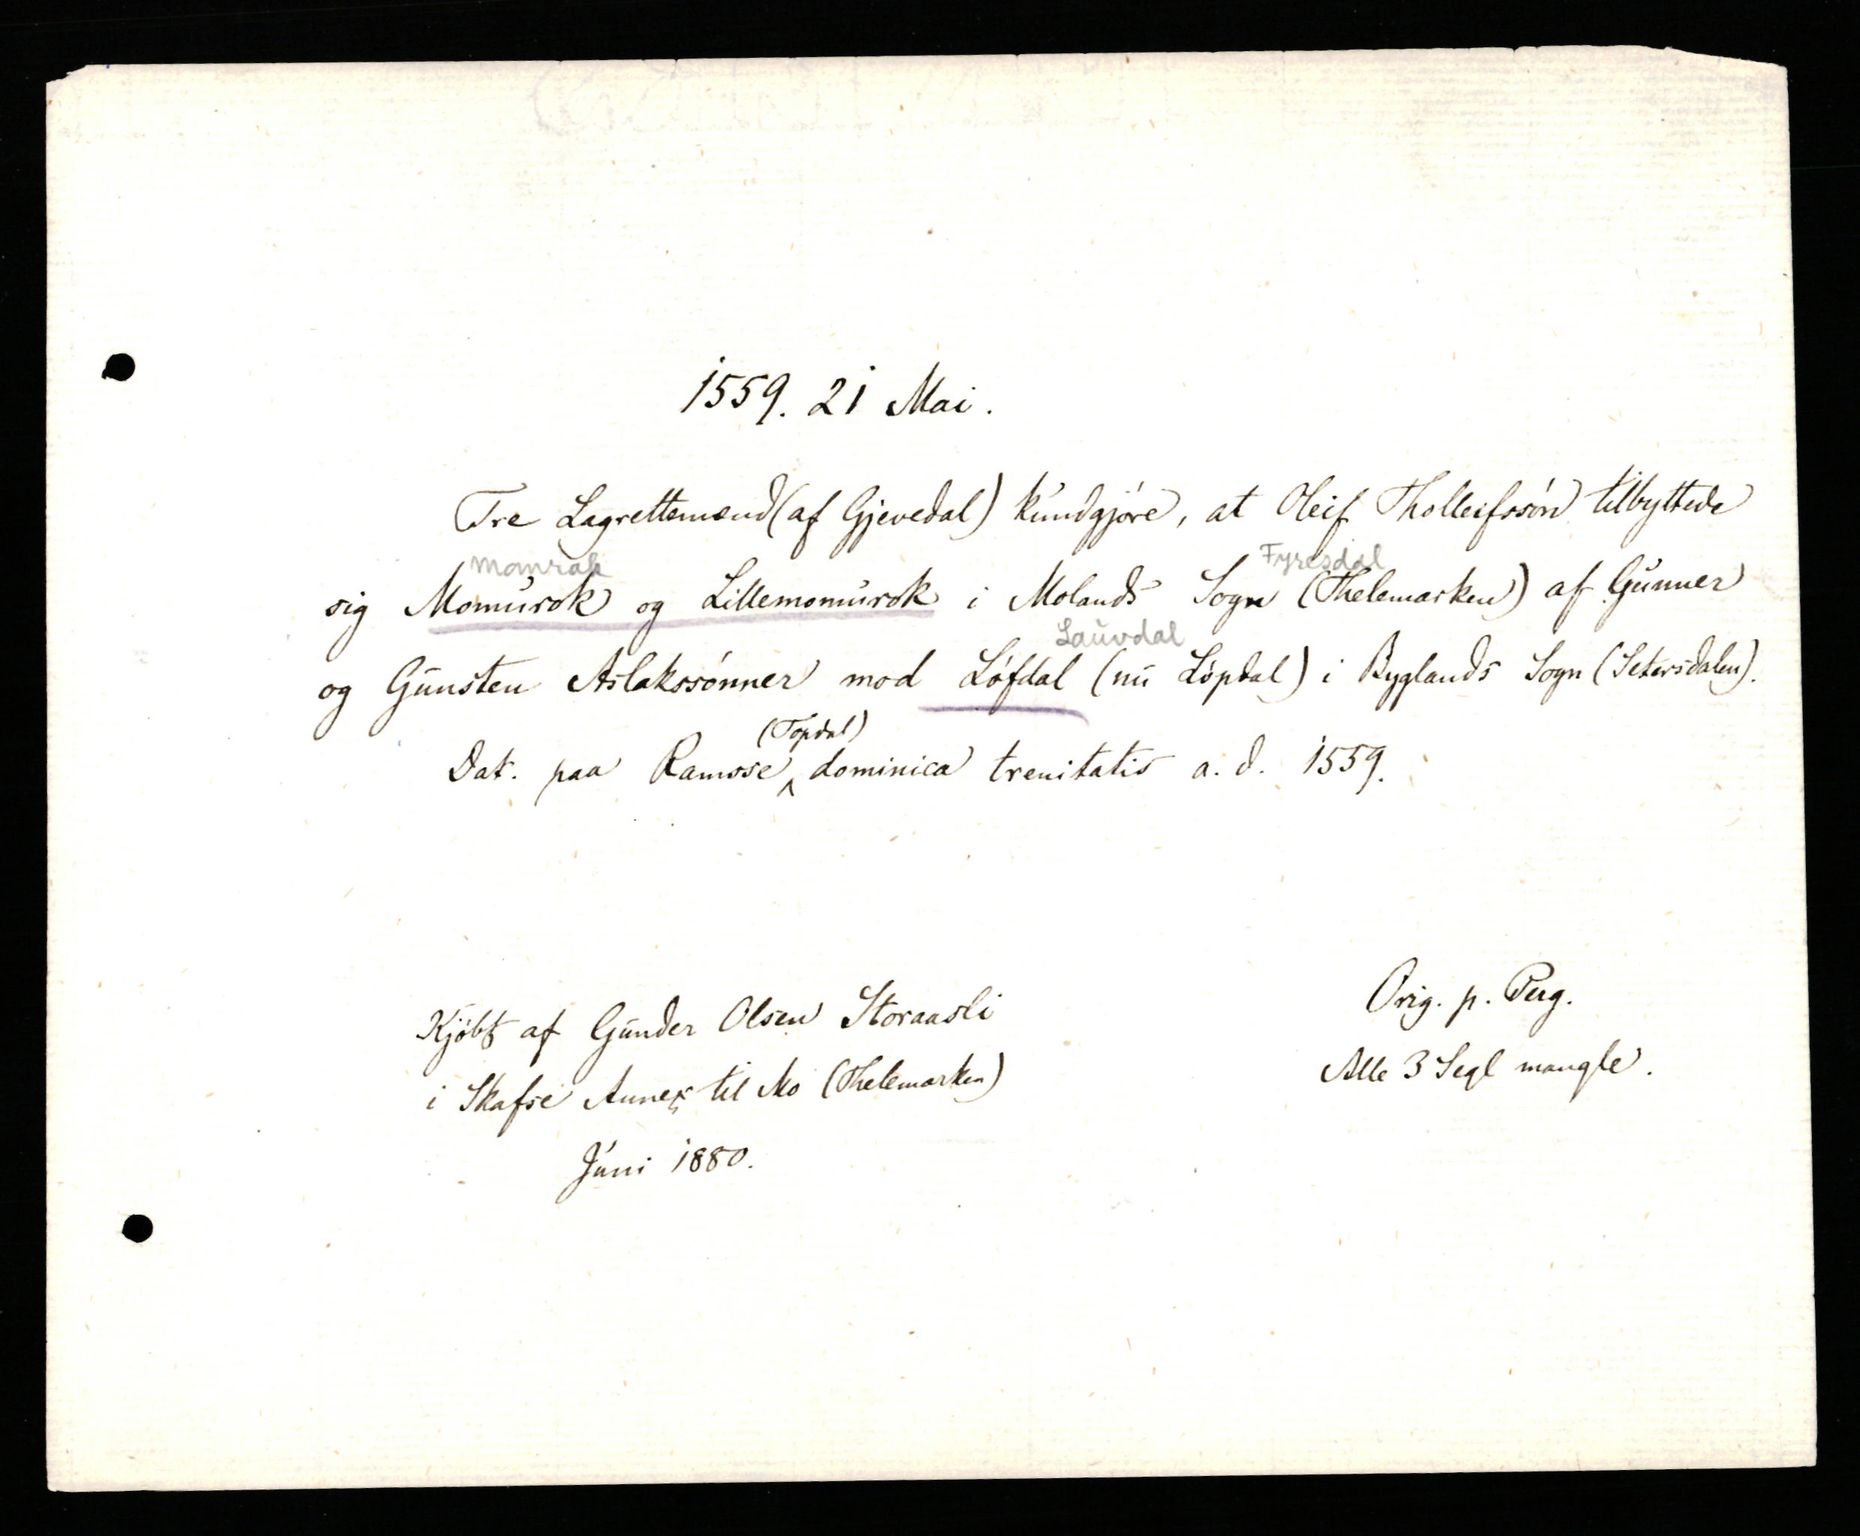 1559. 21 Mai.
Tre Lagrettemænd (af Gjevedal) kundgjøre, at Oleif Tholleifssøn tilbyttede
Momrak Fyresdal
sig Momurok og Lillemomurok i Molands Sogn (Thelemarken) af Gunner
Lauvdal
og Gunsten Aslakssønner mod Løfdal (nu Løpdal) i Byglands Sogn (Setersdalen).
(Topdal)
Dat. paa Ramsse, dominica trenitatis a. d. 1559.
Kjøbt af Gunder Olsen Storaasli
i Skafse Annex til Mo (Thelemarken)
Juni 1880.
Orig. p. Perg.
Alle 3 Segl mangle.